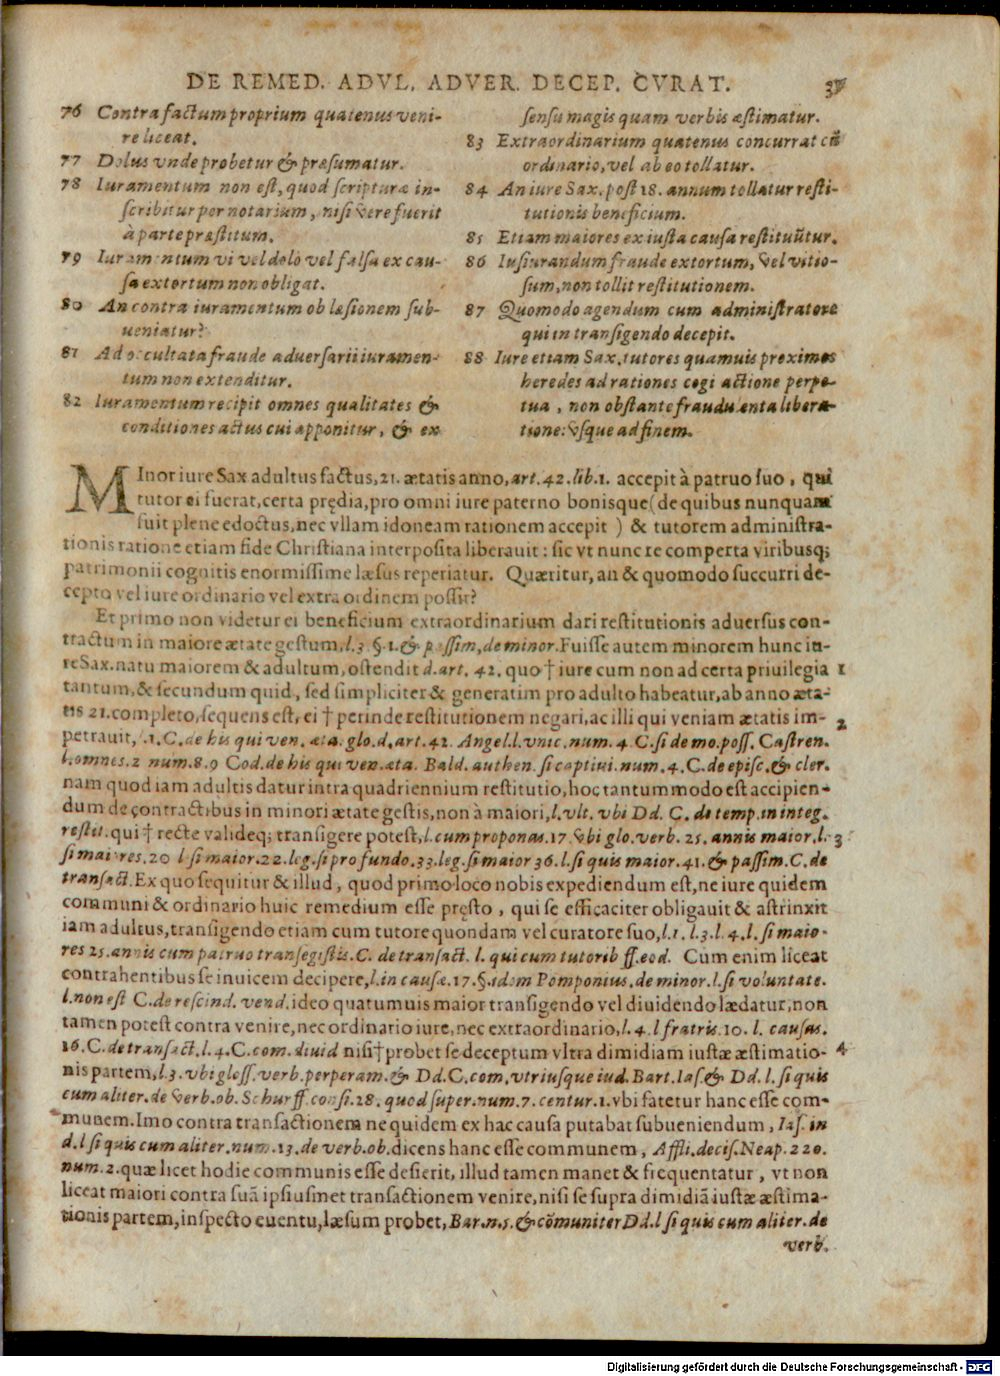 DE REMED. ADVL. ADVER. DECEP. CVRAT.
76 Contra factum proprium quatenus veni-
re liceat.
77 Dolus vnde probetur & præsumatur.
78 Iuramentum non est, quod scripturæ in-
scribitur per notarium, nisi vere fuerit
à parte præstitum.
79 Iuramentum vi vel dolo vel falsa ex cau-
sa extortum non obligat.
80 An contra iuramentum ob læsionem sub-
ueniatur?
81 Ad occultata fraude aduersarii iuramen-
tum non extenditur.
82 Iuramentum recipit omnes qualitates &
conditiones actus cui apponitur, & ex
sensu magis quam verbis æstimatur.
83 Extraordinarium quatenus concurrat cũ
ordinario, vel ab eo tollatur.
84 An iure Sax. post 18. annum tollatur resti-
tutionis beneficium.
85 Etiam maiores ex iusta causa restituũtur.
86 Iusiurandum fraude extortum, vel vitio-
sum, non tollit restitutionem.
87 Quomodo agendum cum administratore
qui in transigendo decepit.
88 Iure etiam Sax. tutores quamuis proximos
heredes ad rationes cogi actione perpe-
tua, non obstante fraudulenta libera-
tione: vsque ad finem.
MInor iure Sax adultus factus, 21. ætatis anno, art. 42. lib. 1. accepit à patruo suo, qui
tutor ei fuerat, certa prędia, pro omni iure paterno bonisque (de quibus nunquam
fuit plene edoctus, nec vllam idoneam rationem accepit) & tutorem administra-
tionis ratione etiam fide Christiana interposita liberauit: sic vt nunc re comperta viribusq;
patrimonii cognitis enormissime læsus reperiatur. Quæritur, an & quomodo succurri de-
cepto vel iure ordinario vel extra ordinem possit?
Et primo non videtur ei beneficium extraordinarium dari restitutionis aduersus con-
tractum in maiore ætate gestum, l. 3 §. 1. & passim, de minor. Fuisse autem minorem hunc iu-
re Sax. natu maiorem & adultum, ostendit d. art. 42. quo † iure cum non ad certa priuilegia 1
tantum, & secundum quid, sed simpliciter & generatim pro adulto habeatur, ab anno æta-
tis 21. completo, sequens est, ei † perinde restitutionem negari, ac illi qui veniam ætatis im- 2
petrauit, l. 1. C. de his qui ven. æta. glo. d. art. 42. Angel. l. vnic. num. 4. C. si de mo. poss. Castren.
l. omnes. 2 num. 8. 9 Cod. de his qui ven. æta. Bald. authen. si captiui. num. 4. C. de episc. & cler.
nam quod iam adultis datur intra quadriennium restitutio, hoc tantummodo est accipien-
dum de cōtractibus in minori ætate gestis, non à maiori, l. vlt. vbi Dd. C. de temp. in integ.
restit. qui † recte valideq; transigere potest, l. cum proponas. 17 vbi glo. verb. 25. annis maior, l. 3
si maiores. 20 l si maior. 22. leg. si pro fundo. 33. leg. si maior 36. l. si quis maior. 41. & passim. C. de
transact. Ex quo sequitur & illud, quod primo loco nobis expediendum est, ne iure quidem
communi & ordinario huic remedium esse pręsto, qui se efficaciter obligauit & astrinxit
iam adultus, transigendo etiam cum tutore quondam vel curatore suo, l. 1. l. 3. l. 4, l. si maio-
res 25. annis cum patruo transegistis. C. de transact. l. qui cum tutorib ff. eod. Cum enim liceat
contrahentibus se inuicem decipere, l. in causæ. 17. §. idem Pomponius. de minor. l. si voluntate.
l. non est C. de rescind. vend. ideo quatumuis maior transigendo vel diuidendo lædatur, non
tamen potest contra venire, nec ordinario iure, nec extraordinario, l. 4. l fratris. 10. l. causas.
16. C. de transact. l. 4. C. com. diuid nisi † probet se deceptum vltra dimidiam iustæ æstimatio- 4
nis partem, l. 3. vbi gloss. verb. perperam. & Dd. C. com, vtriusque iud. Bart. Ias. & Dd. l. si quis
cum aliter. de verb. ob. Schurff. consi. 28. quod super. num. 7. centur. 1. vbi fatetur hanc esse com-
munem. Imo contra transactionem ne quidem ex hac causa putabat subueniendum, Ias. in
d. l si quis cum aliter. num. 13. de verb. ob. dicens hanc esse communem, Affli. decis. Neap. 220.
num. 2. quæ licet hodie communis esse desierit, illud tamen manet & frequentatur, vt non
liceat maiori contra suã ipsiusmet transactionem venire, nisi se supra dimidiã iustæ æstima-
tionis partem, inspecto euentu, læsum probet, Bar. n. 5. & cõmuniter Dd. l si quis cum aliter. de
verb.
Digitalisierung gefördert durch die Deutsche Forschungsgemeinschaft - DFG